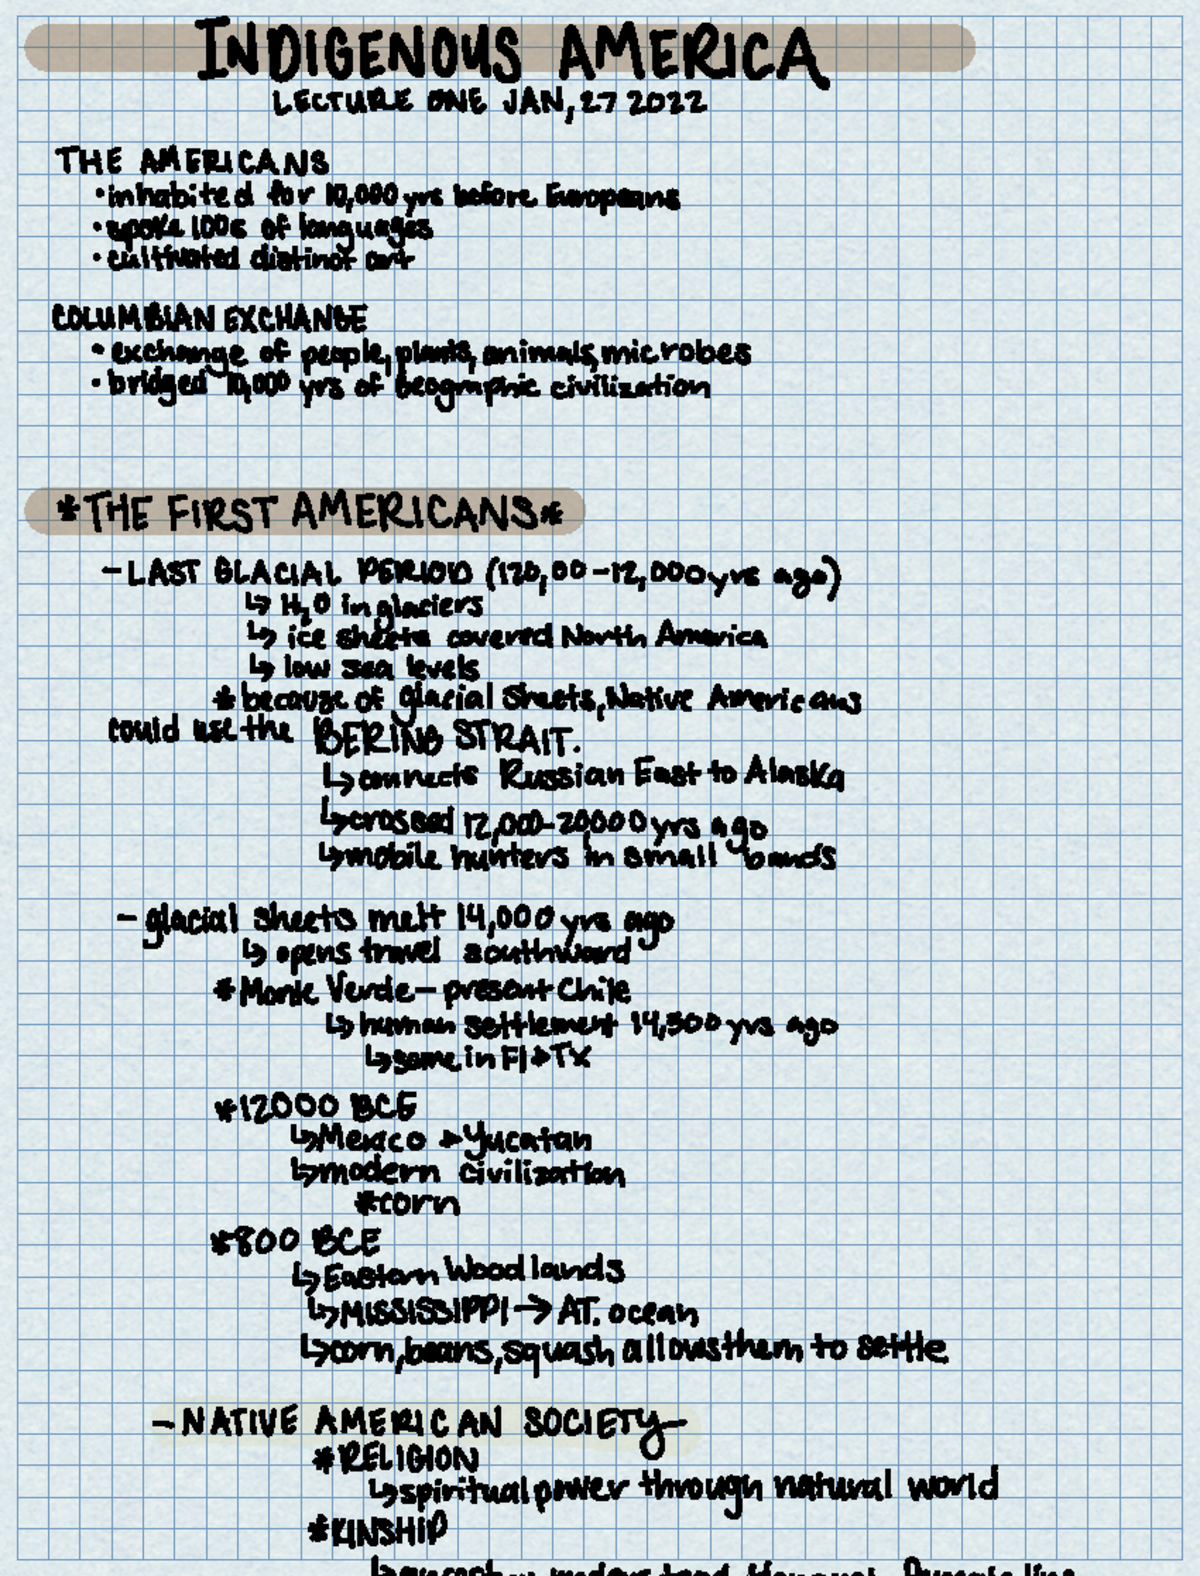 INDIGENOUS AMERICA
LECTURE ONE JAN, 27 2022
THE AMERICANS
• inhabited for 10,000 yrs before Europeans
• spoke 100s of languages
• cultivated distinct art
COLUMBIAN EXCHANGE
• exchange of people, plants, animals, microbes
• bridged 10,000 yrs of Geographic civilization
*THE FIRST AMERICANS*
- LAST GLACIAL PERIOD (120,00-12,000 yrs ago)
↳ H₂O in glaciers
↳ ice sheets covered North America
↳ low sea levels
* because of glacial sheets, Native Americans
could use the BERING STRAIT.
↳ connects Russian East to Alaska
↳ crossed 12,000-20000 yrs ago
↳ mobile hunters in small bands
- glacial sheets melt 14,000 yrs ago
↳ opens travel southward
* Monte Verde - present Chile
↳ human settlement 14,500 yrs ago
↳ same in Fl + TX
*12000 BCE
↳ Mexico + Yucatan
↳ modern civilization
*corn
*800 BCE
↳ Eastern Woodlands
↳ MISSISSIPPI → AT. ocean
↳ corn, beans, squash allows them to settle
- NATIVE AMERICAN SOCIETY -
*RELIGION
↳ spiritual power through natural world
*KINSHIP